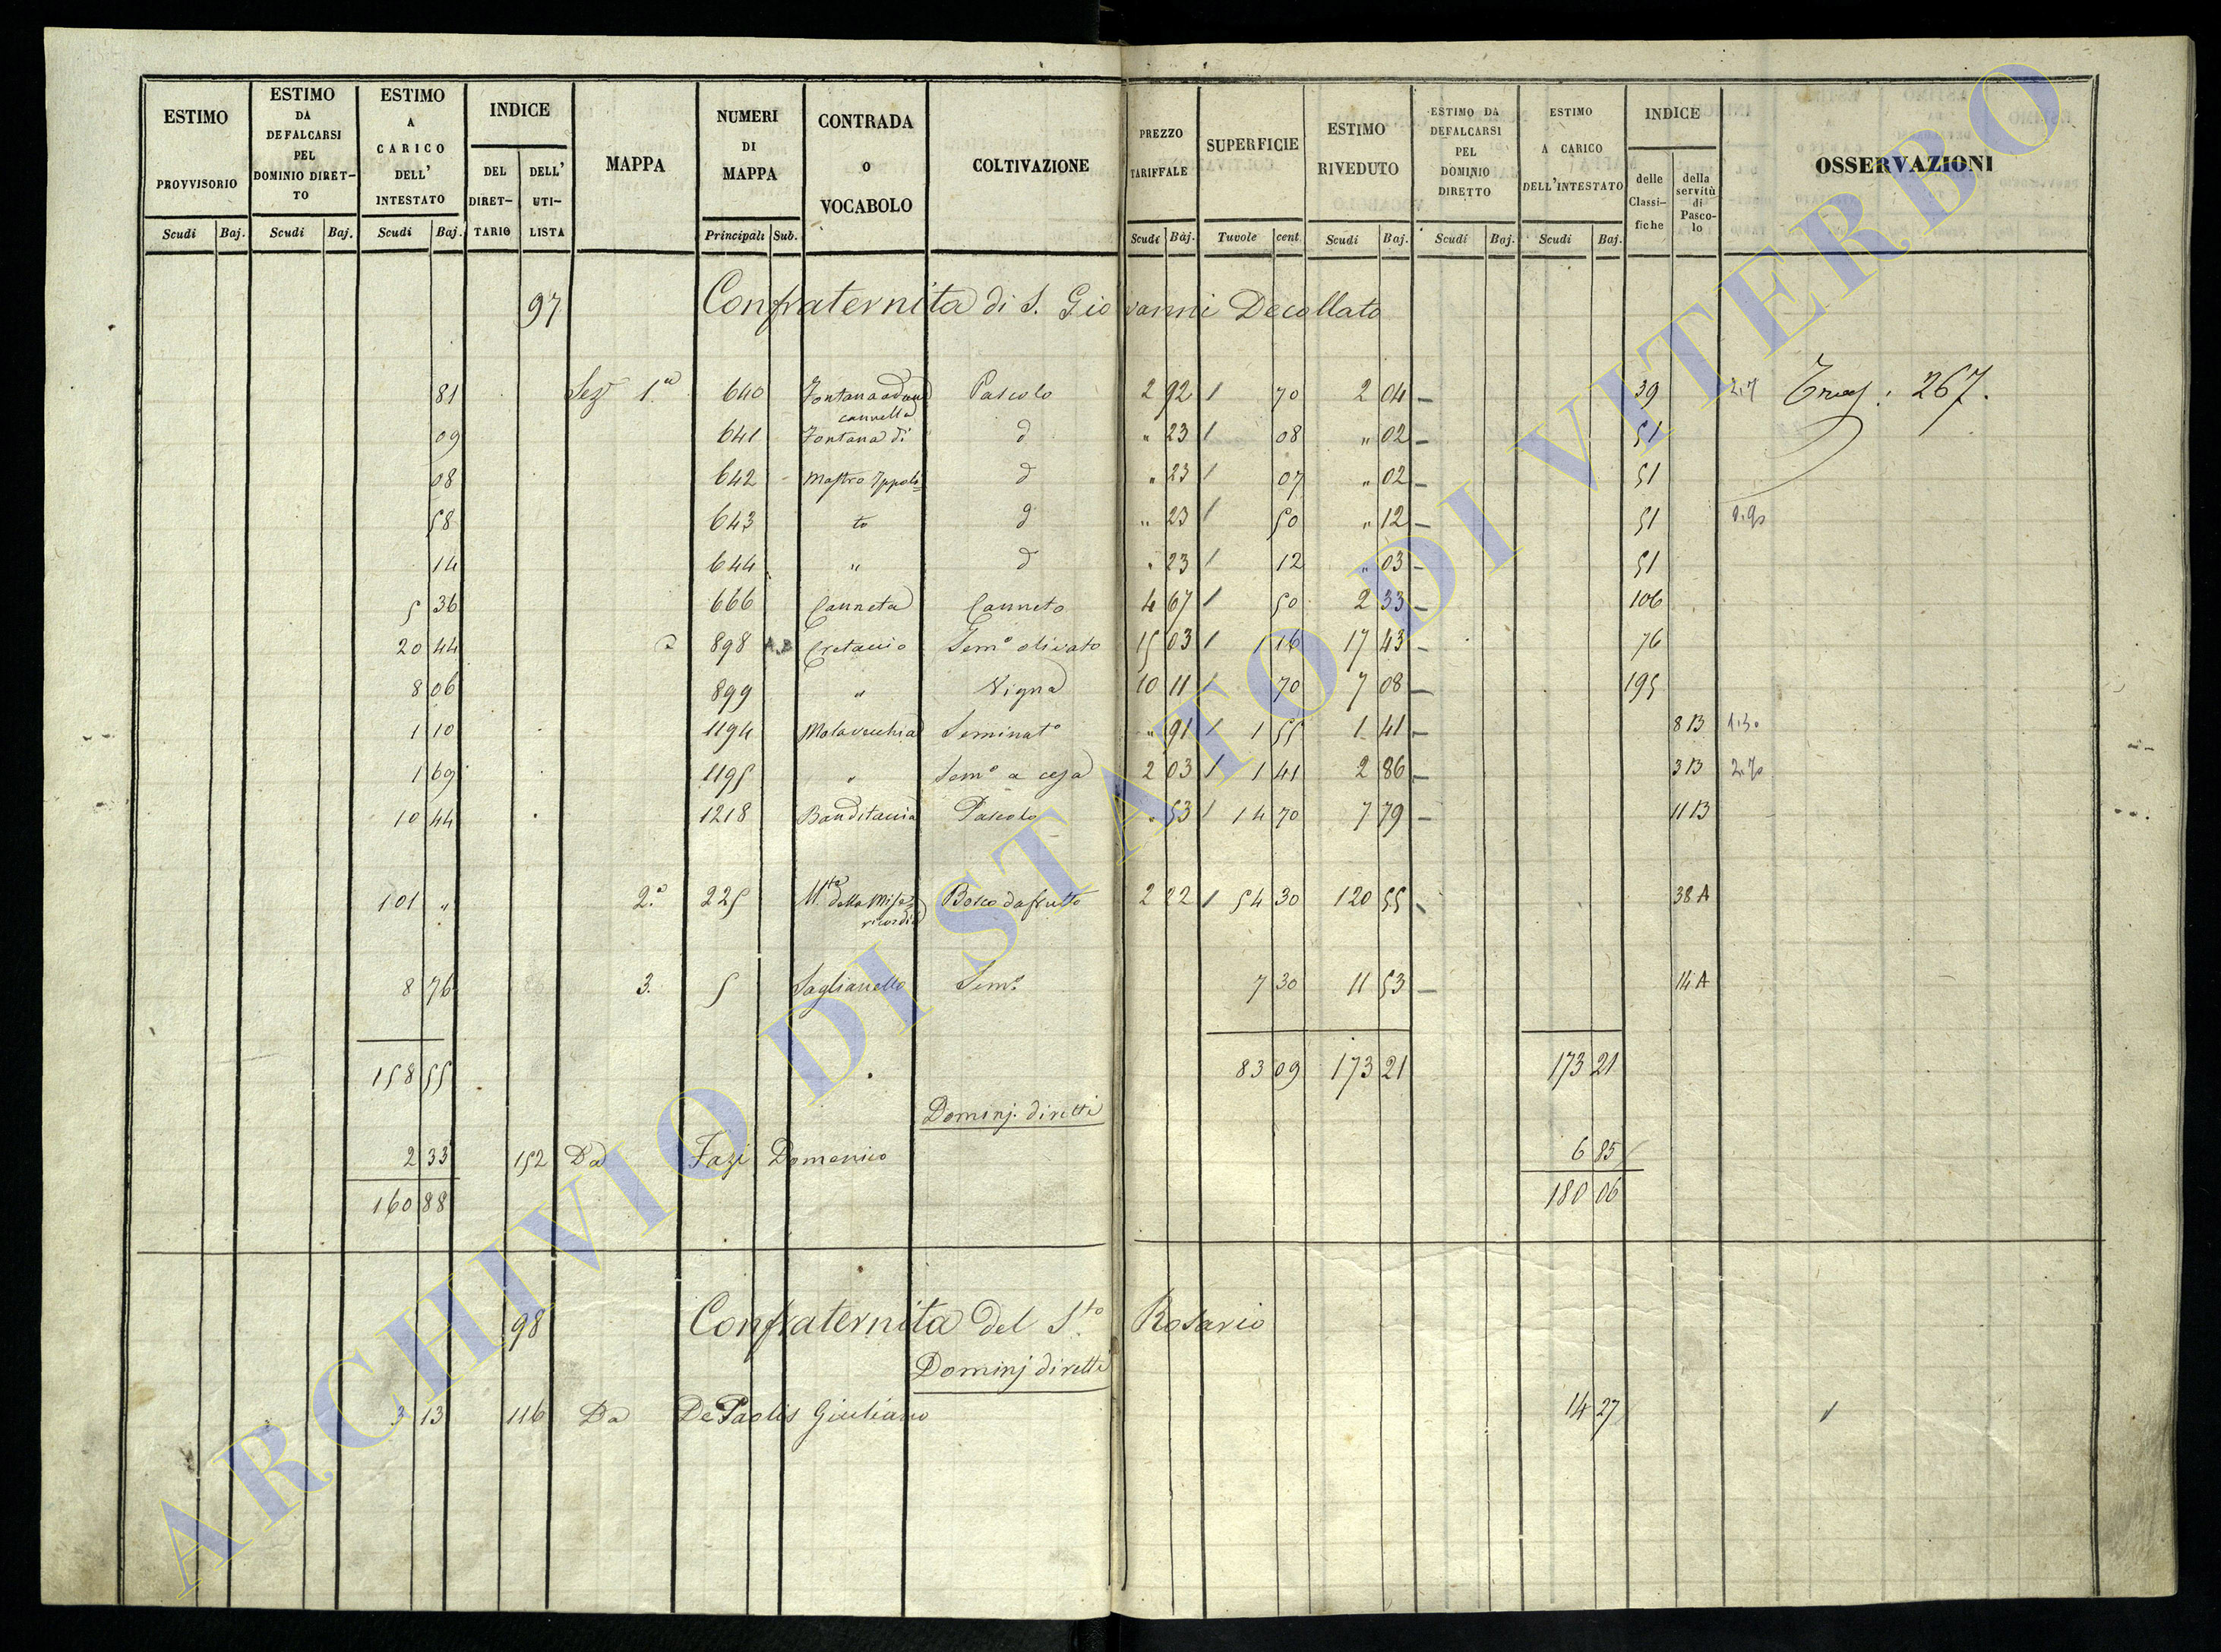 ESTIMO PROVVISORIO | ESTIMO DA DEFALCARSI PEL DOMINIO DIRET–TO | ESTIMO A CARICO DELL' INTESTATO | INDICE | MAPPA | NUMERI DI MAPPA | CONTRADA O VOCABOLO | COLTIVAZIONE | PREZZO TARIFFALE | SUPERFICIE | ESTIMO RIVEDUTO | ESTIMO DA DEFALCARSI PEL DOMINIO DIRETTO | ESTIMO A CARICO DELL'INTESTATO | INDICE | OSSERVAZIONI
DEL DIRET–TARIO | DELL' UTI–LISTA | delle Classi–fiche | della servitù di Pasco–lo
Scudi | Baj. | Scudi | Baj. | Scudi | Baj. | Principali | Sub. | Scudi | Baj. | Tavole | cent | Scudi | Baj. | Scudi | Baj. | Scudi | Baj.
97 Confraternita di S. Giovanni Decollato
81 Sez 1.a 640 Fontana cannella Pascolo 2 92 / 70 2 04 – 39 267.
09 641 Fontana di d " 23 / 08 " 02 – 51
08 642 Mastro Ippoli= d " 23 / 07 " 02 – 51
58 643 to d " 23 / 50 " 12 – 51
14 644 " d " 23 / 12 " 03 – 51
5 36 666 Canneta Canneto 4 67 / 50 2 33 – 106
20 44 898 Cretaccio Sem.o olivato 15 03 / 1 16 17 43 – 76
8 06 899 " Vigna 10 11 / 70 7 08 – 195
1 10 1194 Molavecchia Seminato " 91 / 1 55 1 41 – 8 B
1 69 1195 " Sem.o a 2 03 / 1 41 2 86 – 3 B
10 44 1218 Banditaccia Pascolo " 53 / 14 70 7 79 – 11 B
101 " 2.a 225 della Mise=ricordia Bosco da frutto 2 22 / 54 30 120 55 38 A
8 76 3. 5 Saglianello Sem.o 7 30 11 53 – 14 A
158 55 83 09 173 21 173 21
Dominj diretti
2 33 152 Da Fazi Domenico 6 85
160 88 180 06
98 Confraternita del S.to Rosario
Dominj diretti
3 13 116 Da De Paolis Giuliano 14 27
ARCHIVIO DI STATO DI VITERBO